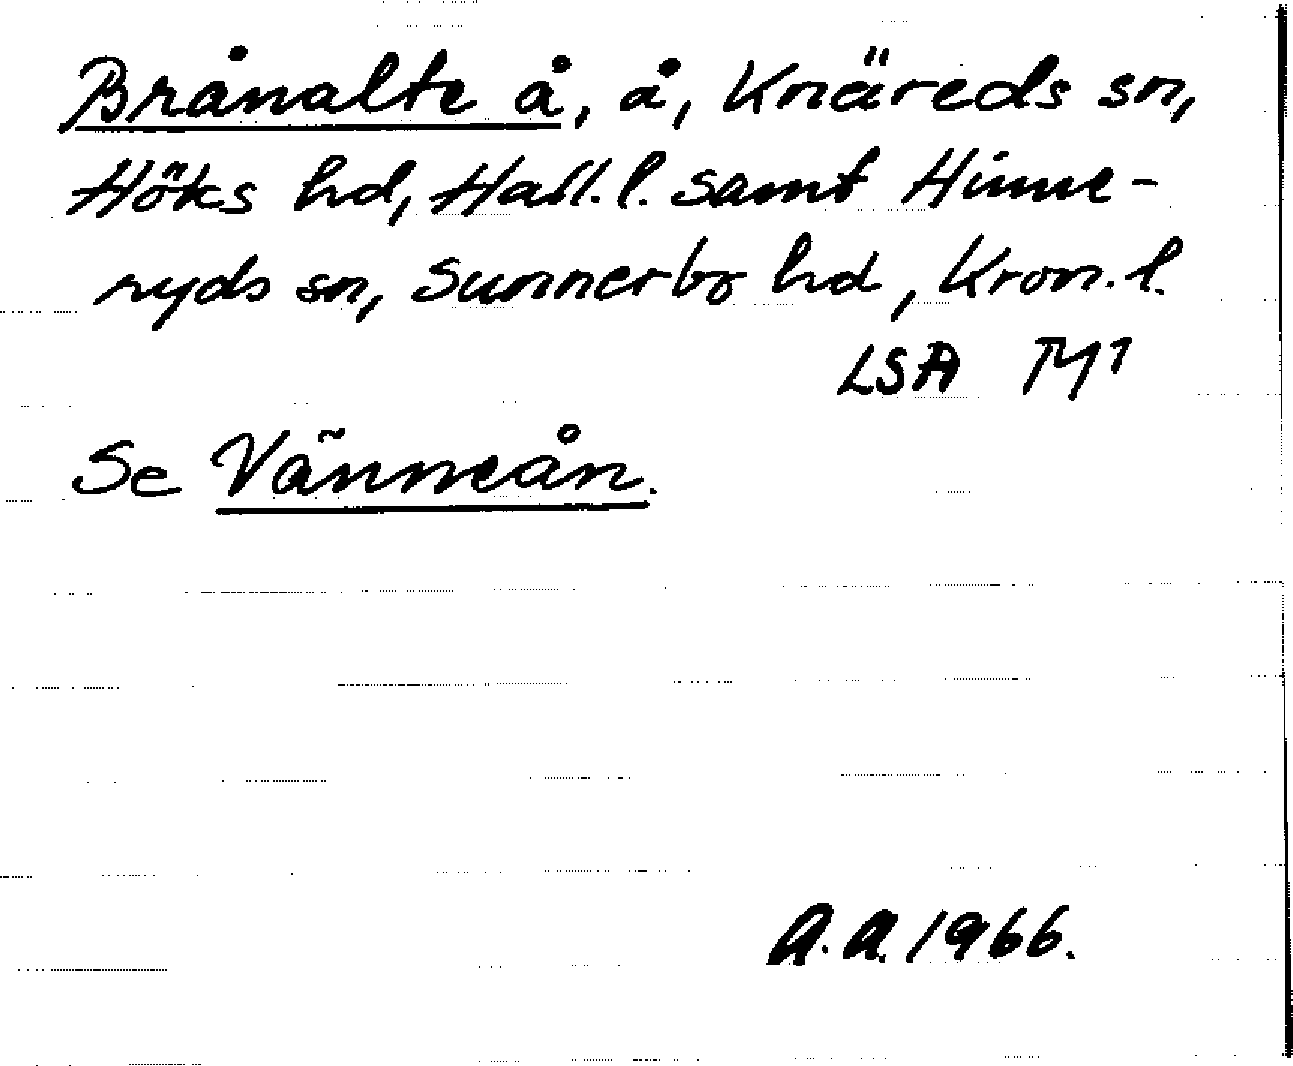 Brånalte å, å, Knäreds sn,
Höks hd, Hall.l. samt Hinne-
ryds sn, Sunnerbo hd, Kron.l.
LSA
Se Vänneån.
A.A. 1966.